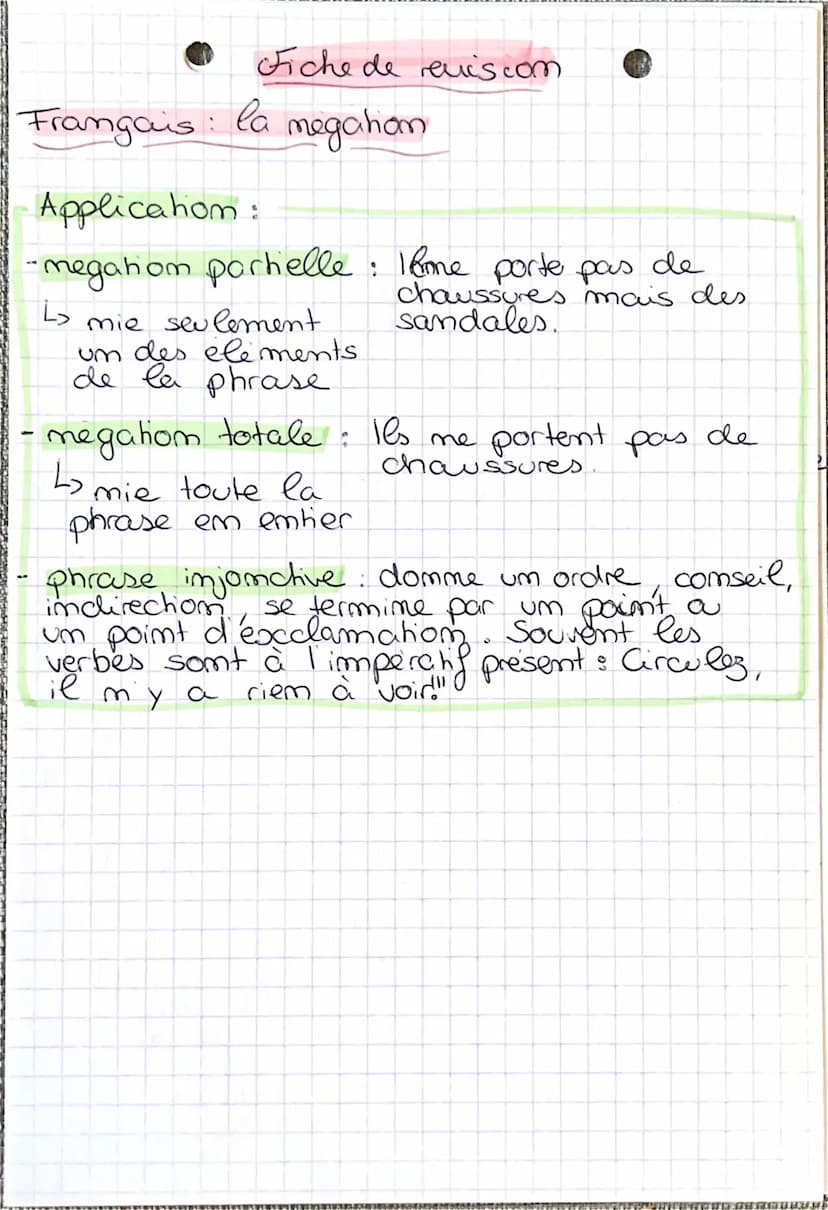 Fiche de revision
Français : la négation
Application :
- négation partielle : Il ne porte pas de
chaussures mais des
sandales.
↳ nie seulement
un des éléments
de la phrase
- négation totale : Ils ne portent pas de
chaussures.
↳ nie toute la
phrase en entier
- phrase injonctive : donne un ordre, conseil,
indirection, se termine par un point a
un point d'exclamation. Souvent les
verbes sont à l'impératif présent : Circulez,
il n'y a rien à voir!"